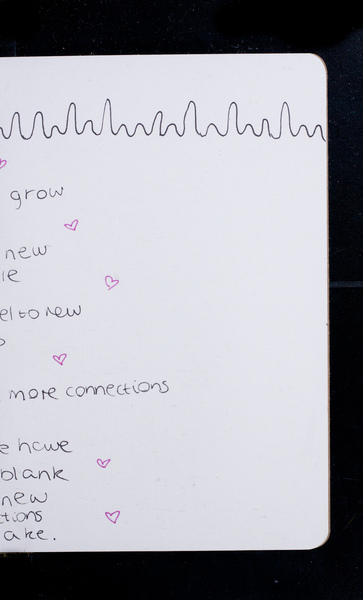 grow
new
el to new
more connections
e have
blank
new
ctions
ake.